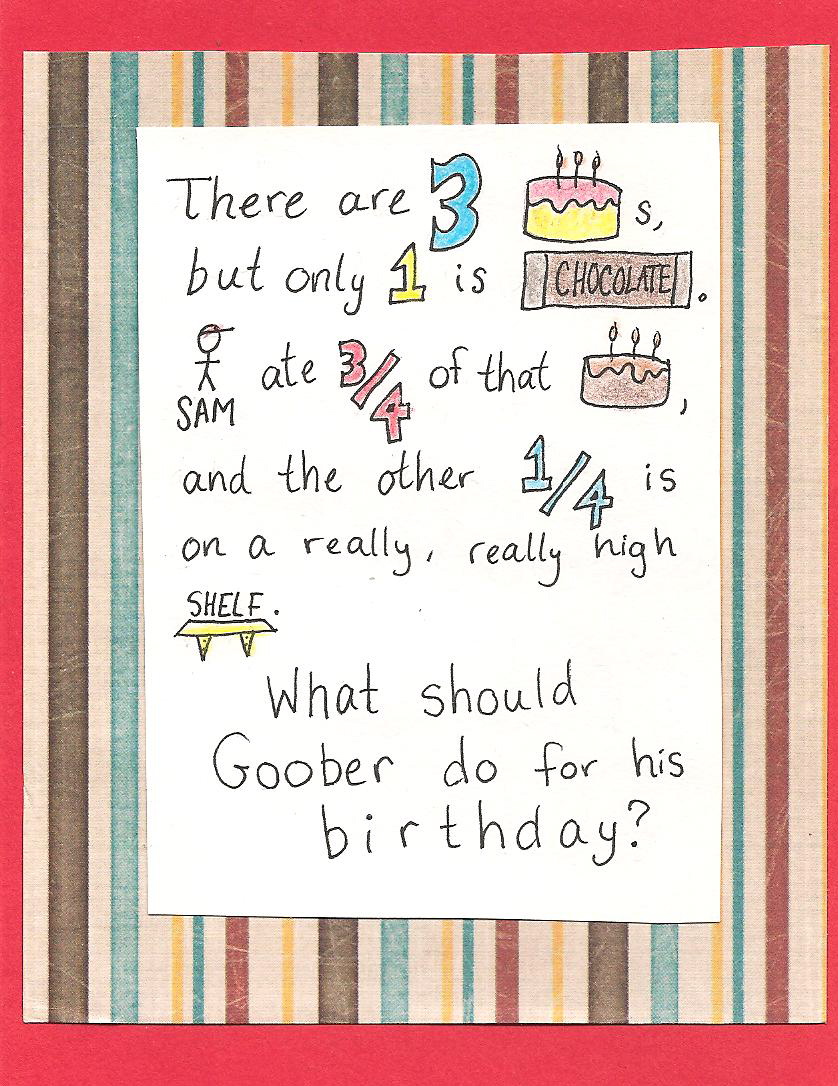 There are 3 s,
but only 1 is CHOCOLATE.
SAM ate 3/4 of that ,
and the other 1/4 is
on a really, really high
SHELF.
What should
Goober do for his
birthday?